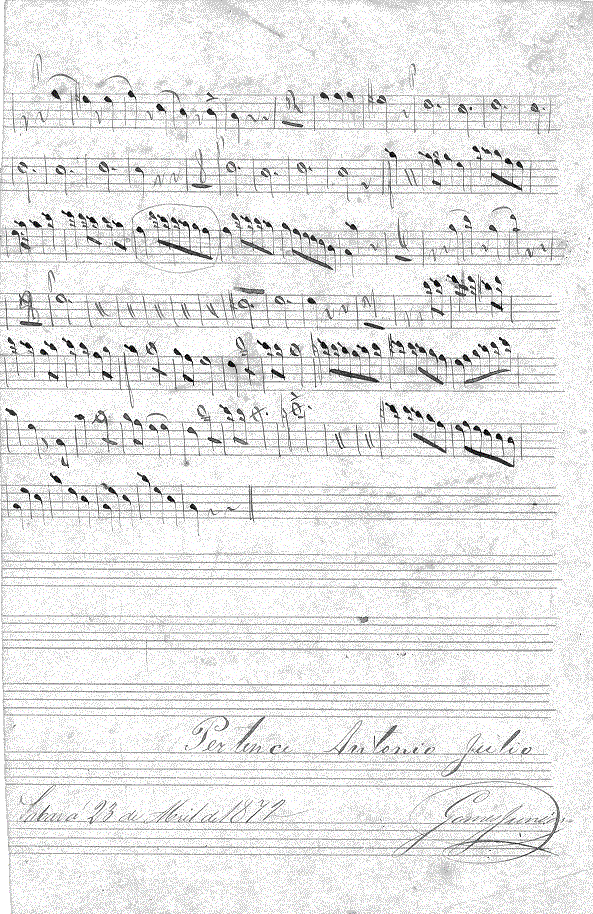 Pertence Antonio Julio
Sabará 23 de Abril de 1872
Gomes Junior